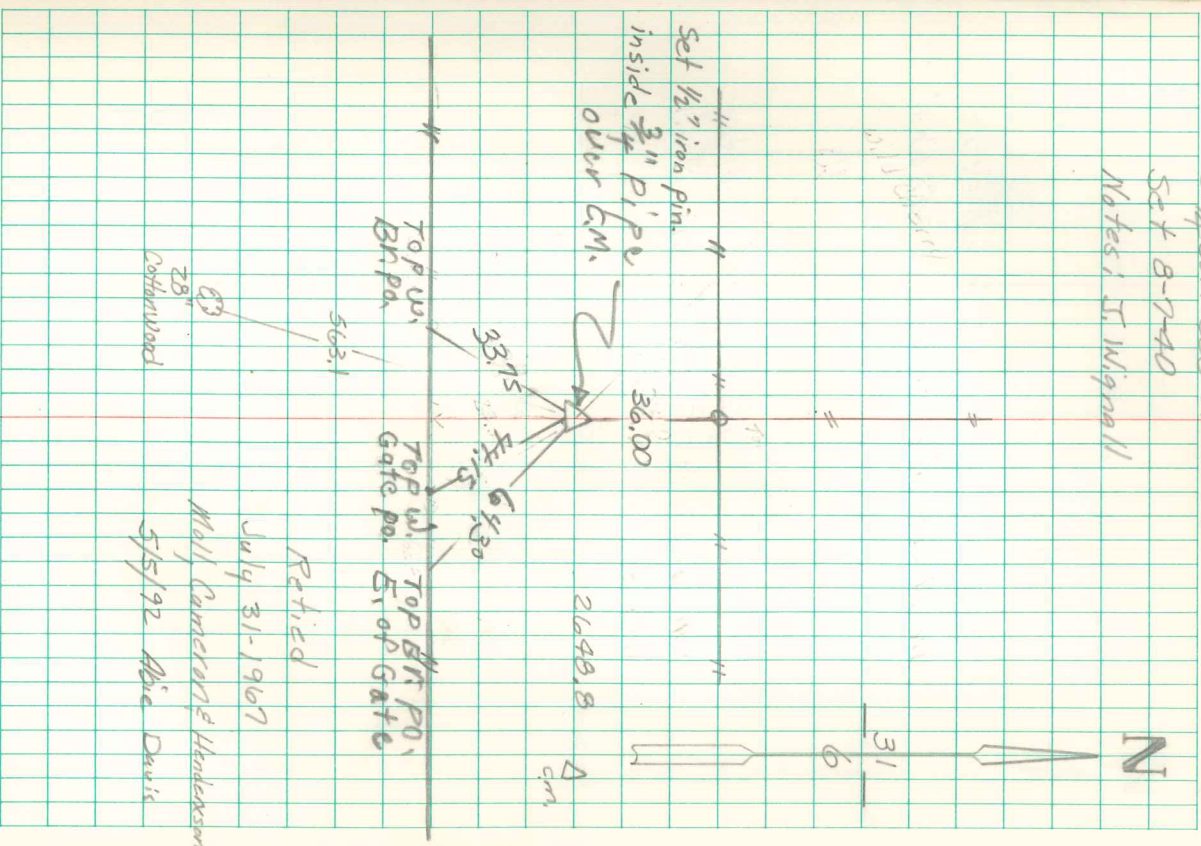 Set 8-7-40
Notes: J. Wignall
N
31
6
Set 1/2" iron pin.
inside 3/4" pipe
over C.M.
36.00
2648.8
C.M.
33.75
44.15
64.30
Top W.
Br. po.
Top W.
Gate po.
Top Br. po.
E. of Gate
563.1
28"
Cottonwood
Retied
July 31-1967
Moll, Cameron & Henderson
5/5/92 Abie Davis